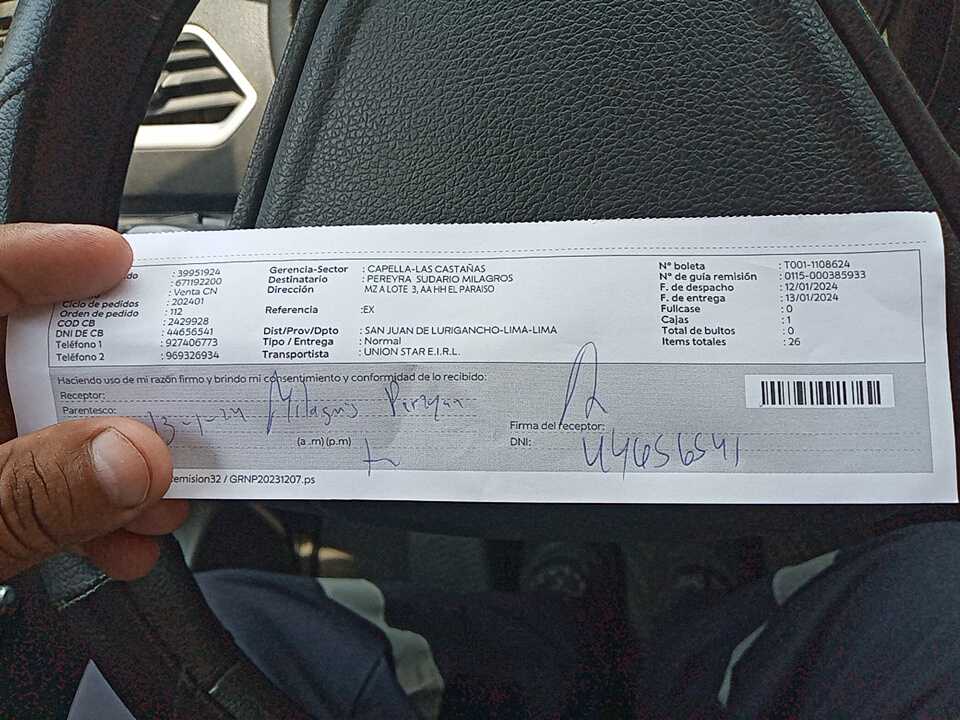 do : 39951924
: 671192200
: Venta CN
Ciclo de pedidos : 202401
Orden de pedido : 112
COD CB : 2429928
DNI DE CB : 44656541
Teléfono 1 : 927406773
Teléfono 2 : 969326934
Gerencia-Sector : CAPELLA-LAS CASTAÑAS
Destinatario : PEREYRA SUDARIO MILAGROS
Dirección MZ A LOTE 3, AA HH EL PARAISO
Referencia :EX
Dist/Prov/Dpto : SAN JUAN DE LURIGANCHO-LIMA-LIMA
Tipo / Entrega : Normal
Transportista : UNION STAR E.I.R.L.
N° boleta : T001-1108624
N° de guía remisión : 0115-000385933
F. de despacho : 12/01/2024
F. de entrega : 13/01/2024
Fullcase : 0
Cajas : 1
Total de bultos : 0
Items totales : 26
Haciendo uso de mi razón firmo y brindo mi consentimiento y conformidad de lo recibido:
Receptor: Milagros
Parentesco:
13-1-24
(a .m) (p.m)
Firma del receptor:
DNI: 44656541
emision32 / GRNP20231207.ps